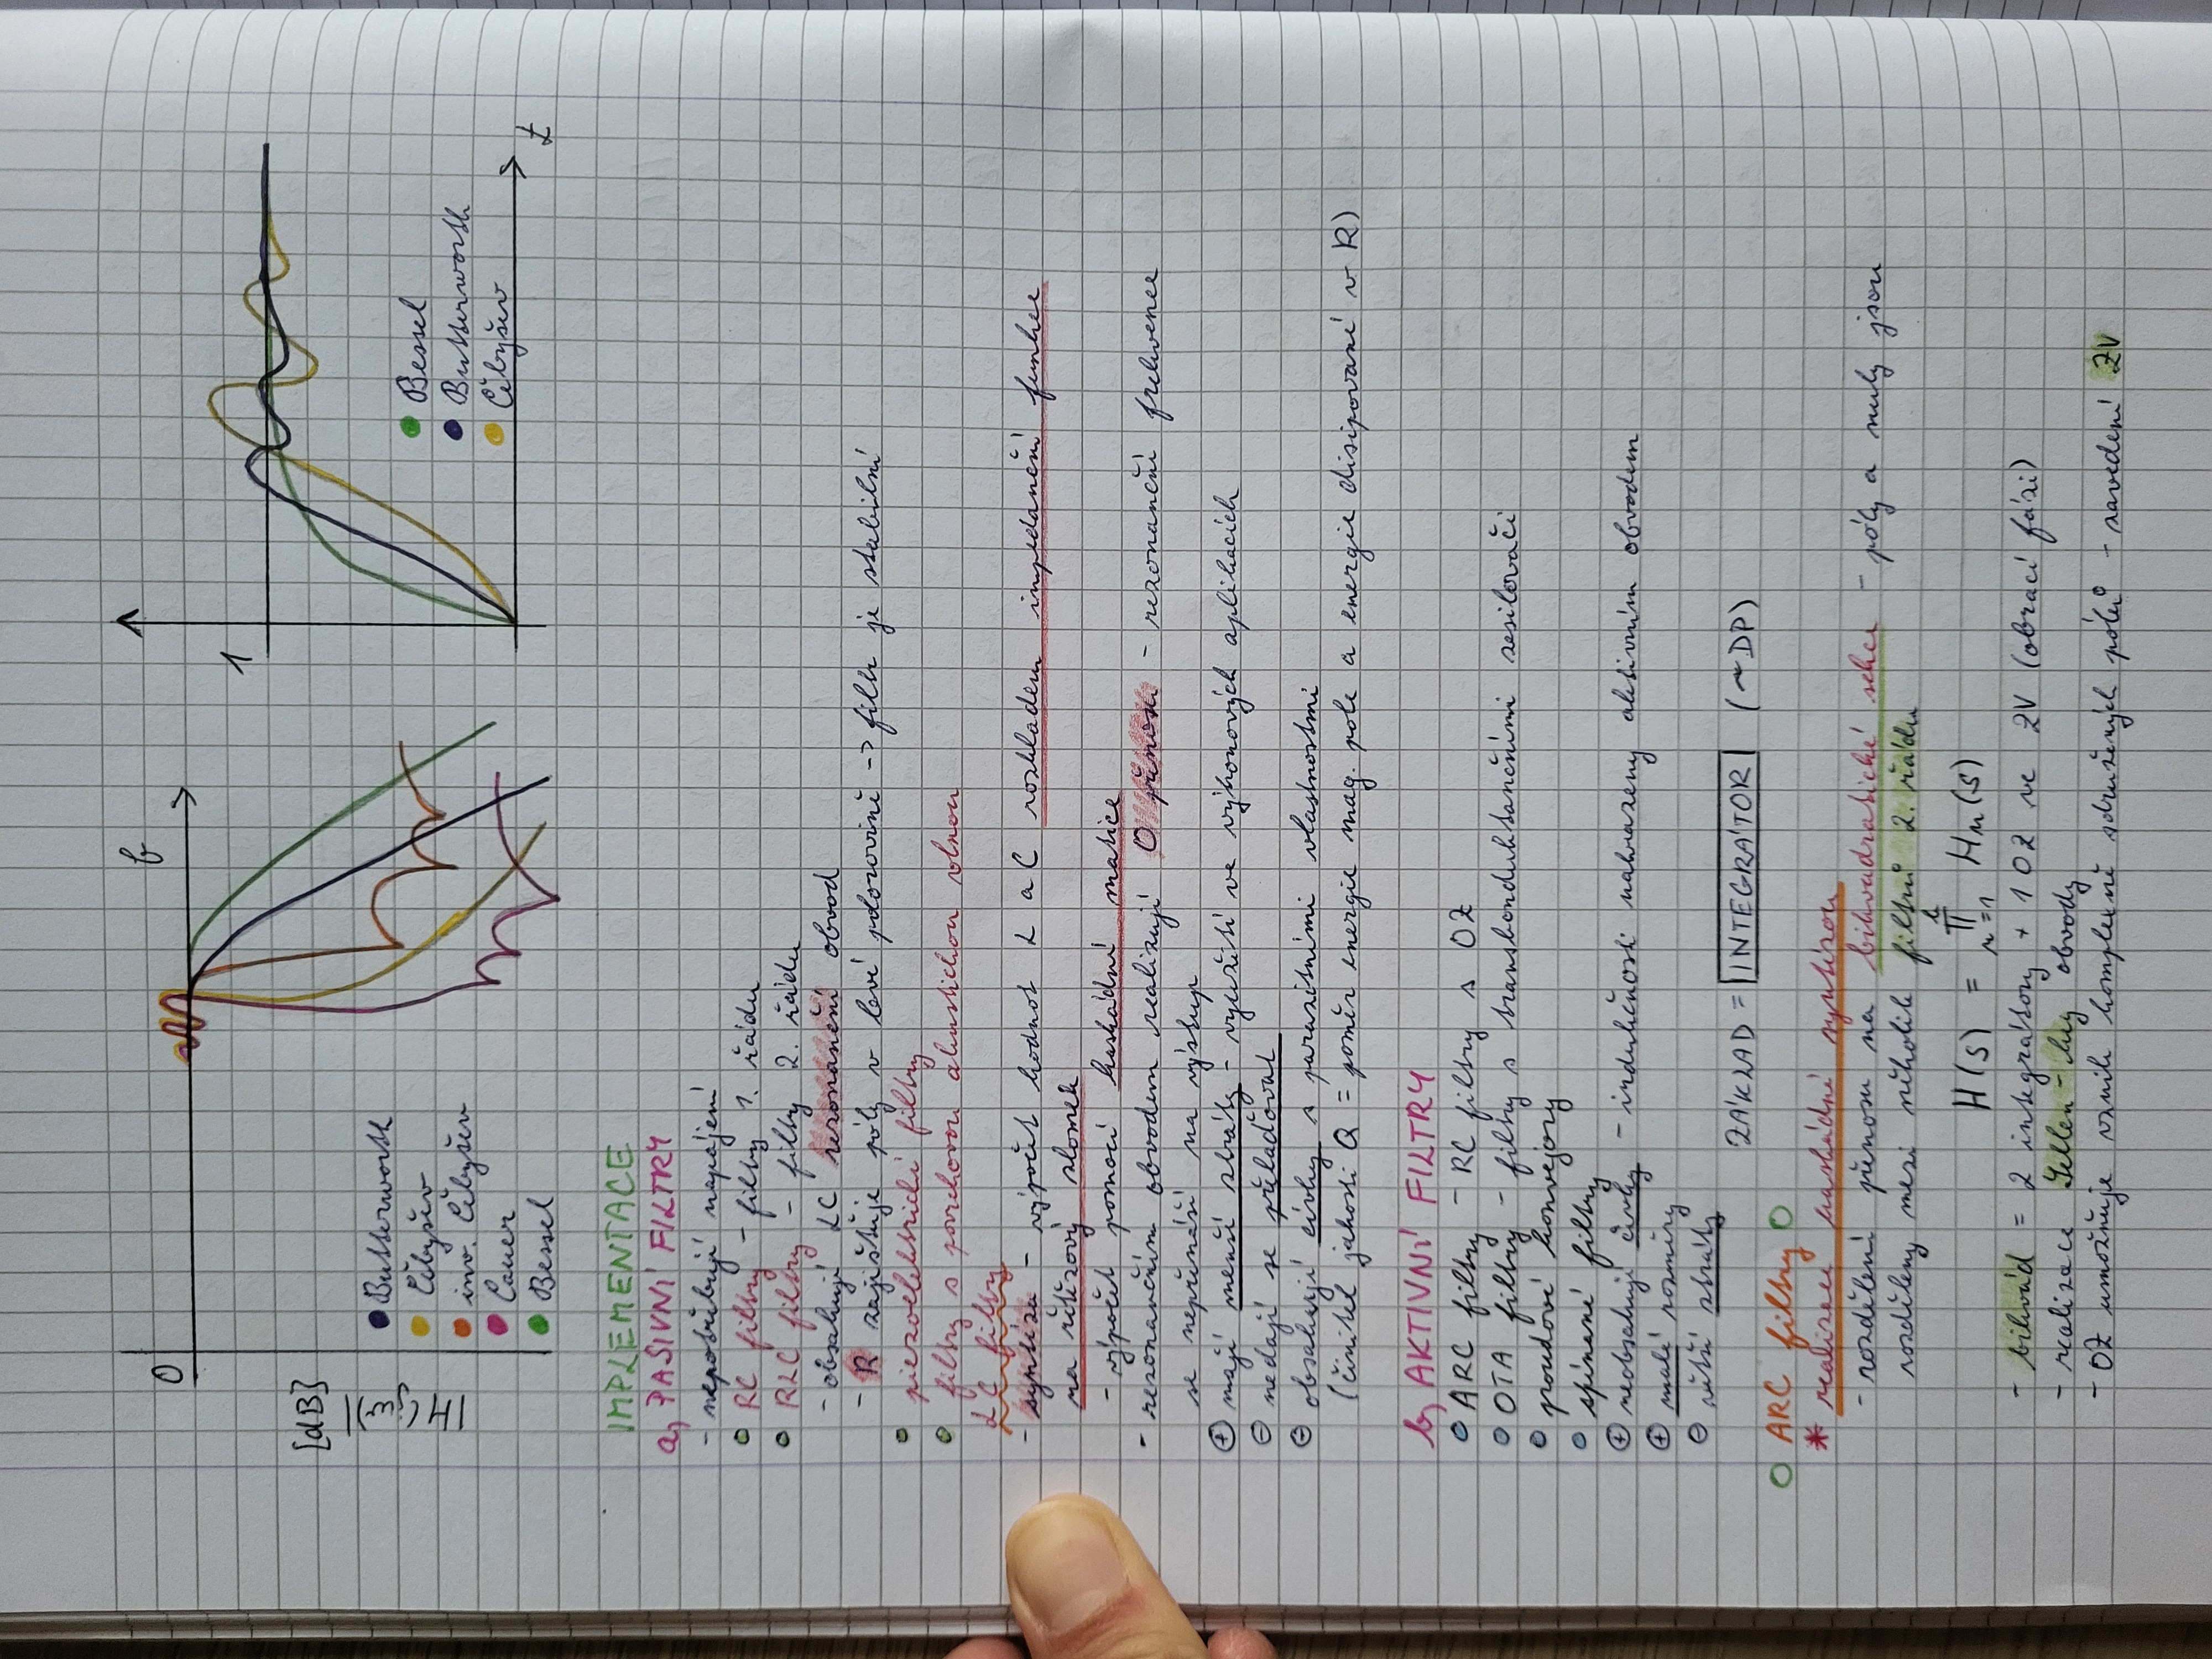 0
f
[dB]
|H(jω)|
Butterworth
Čebyšev
inv. Čebyšev
Cauer
Bessel
1
Bessel
Butterworth
Čebyšev
t
IMPLEMENTACE
a) PASIVNÍ FILTRY
- nepotřebují napájení
RC filtry - filtry 1. řádu
RLC filtry - filtry 2. řádu
- obsahují LC rezonanční obvod
- R zajišťuje póly v levé polorovině -> filtr je stabilní
piezoelektrické filtry
filtry s povrchovou akustickou vlnou
LC filtry
- syntéza - výpočet hodnot L a C rozkladem impedanční funkce
na řetězový zlomek
- výpočet pomocí kaskádní matice
- rezonančním obvodem realizují 0 přenosu - rezonanční frekvence
se nepřenáší na výstup
⊕ mají menší ztráty - využití ve výkonových aplikacích
⊖ nedají se přelaďovat
⊖ obsahují cívky s parazitními vlastnostmi
(činitel jakosti Q = poměr energie mag. pole a energie disipované v R)
b) AKTIVNÍ FILTRY
ARC filtry - RC filtry s OZ
OTA filtry - filtry s transkonduktančními zesilovači
proudové konvejory
spínané filtry
⊕ neobsahují cívky - indukčnosti nahrazeny aktivním obvodem
⊕ malé rozměry
⊖ větší ztráty
ZÁKLAD = INTEGRÁTOR (~DP)
ARC filtry
* realizace kaskádní syntézou
- rozdělení přenosu na bikvadratické sekce - póly a nuly jsou
rozděleny mezi několik filtrů 2. řádu
H(s) = ∏ₙ₌₁ᵏ Hn(s)
- bikvád = 2 integrátory + 1 OZ ve ZV (obrací fázi)
- realizace Sallen-key obvody
- OZ umožňuje vznik komplexně sdružených pólů - zavedení ZV